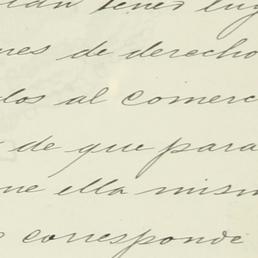 tener
nes de derecho
los al comerc
de que para
ne ella mism
corresponde